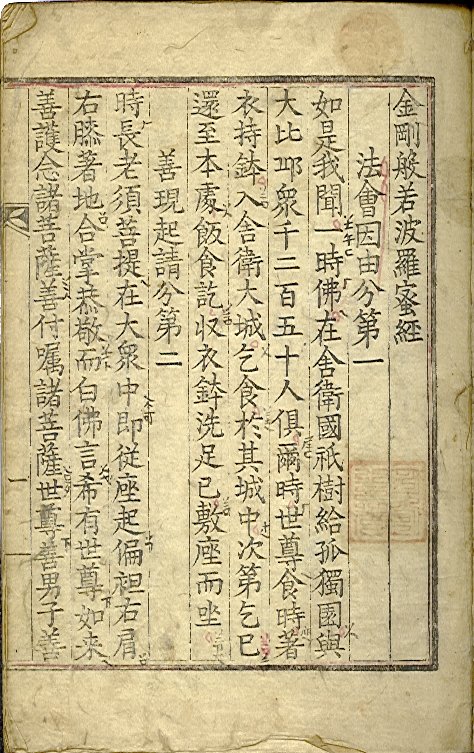 金剛般若波羅蜜經
法會因由分第一
如是我聞一時佛在舍衛國祇樹給孤獨園與
大比邱衆千二百五十人俱爾時世尊食時著
衣持鉢入舍衛大城乞食於其城中次第乞已
還至本處飯食訖収衣鉢洗足已敷座而坐
善現起請分第二
時長老須菩提在大衆中即從座起偏袒右肩
右膝著地合掌恭敬而白佛言希有世尊如来
善護念諸菩薩善付囑諸菩薩世尊善男子善
一